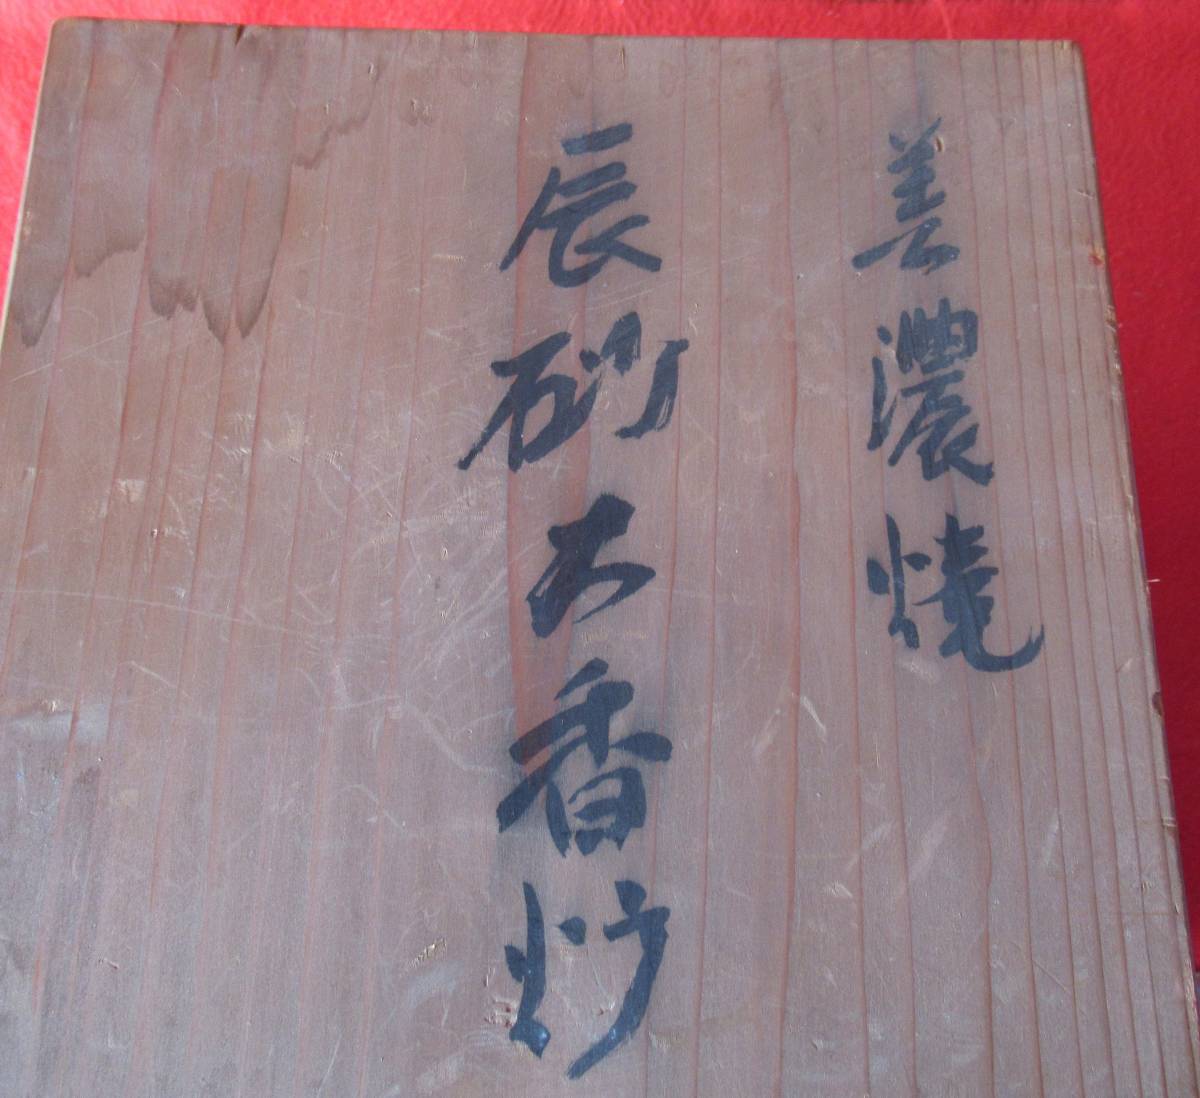 美濃焼
辰砂大香炉